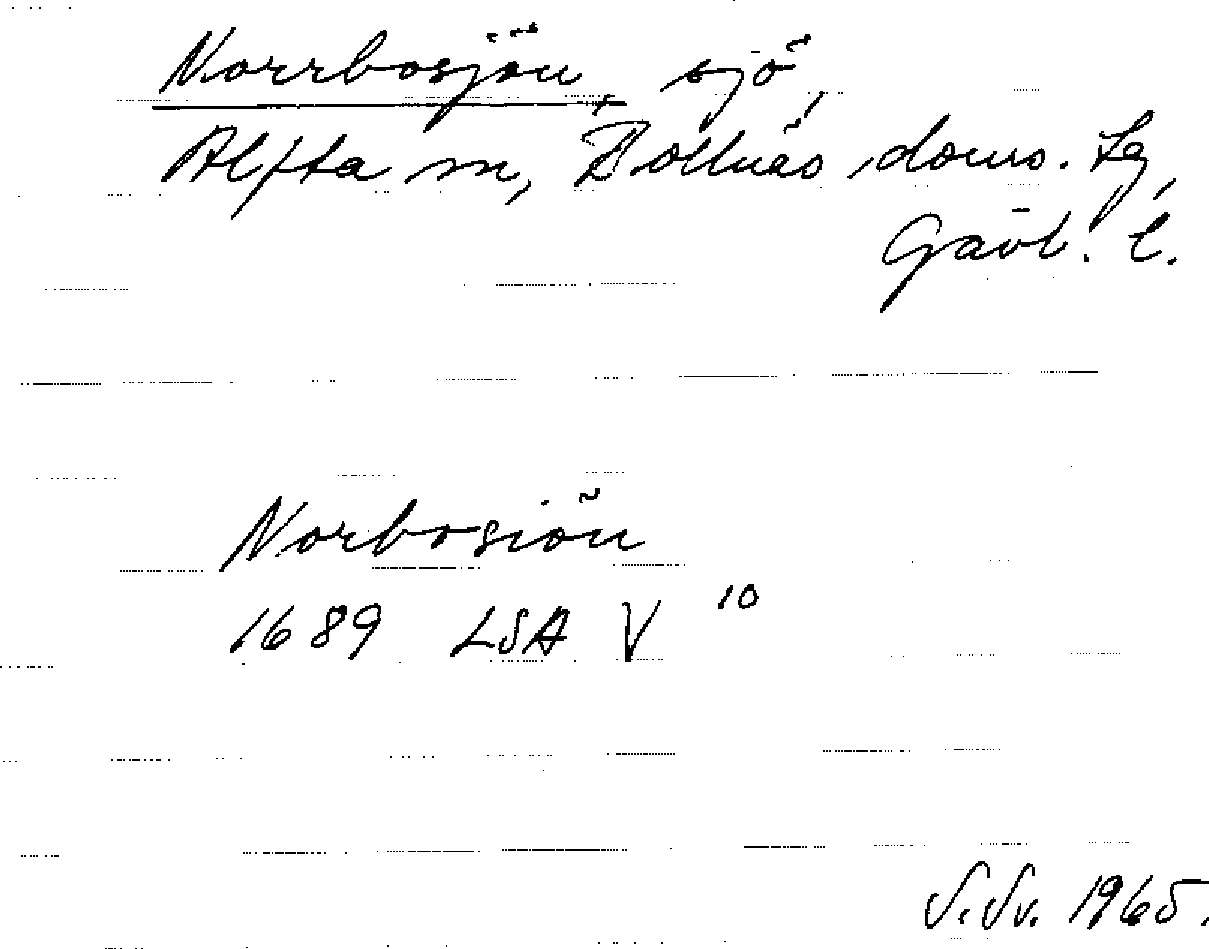 Norrbosjön, sjö,
Alfta sn, Bollnäs doms. lg,
Gävl. l.
Norbosiön
1689 LSA V 10
S.Sv. 1965.